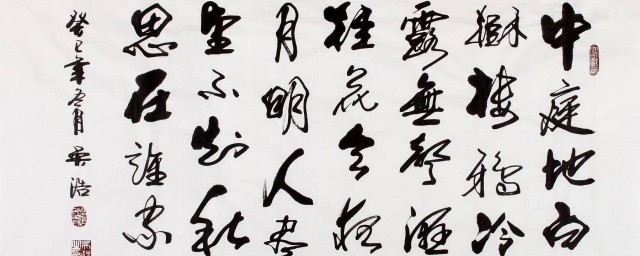 中庭地白
樹棲鴉冷
露無聲濕
桂花今夜
月明人盡
望不知秋
思在誰家
癸巳年月吴浩